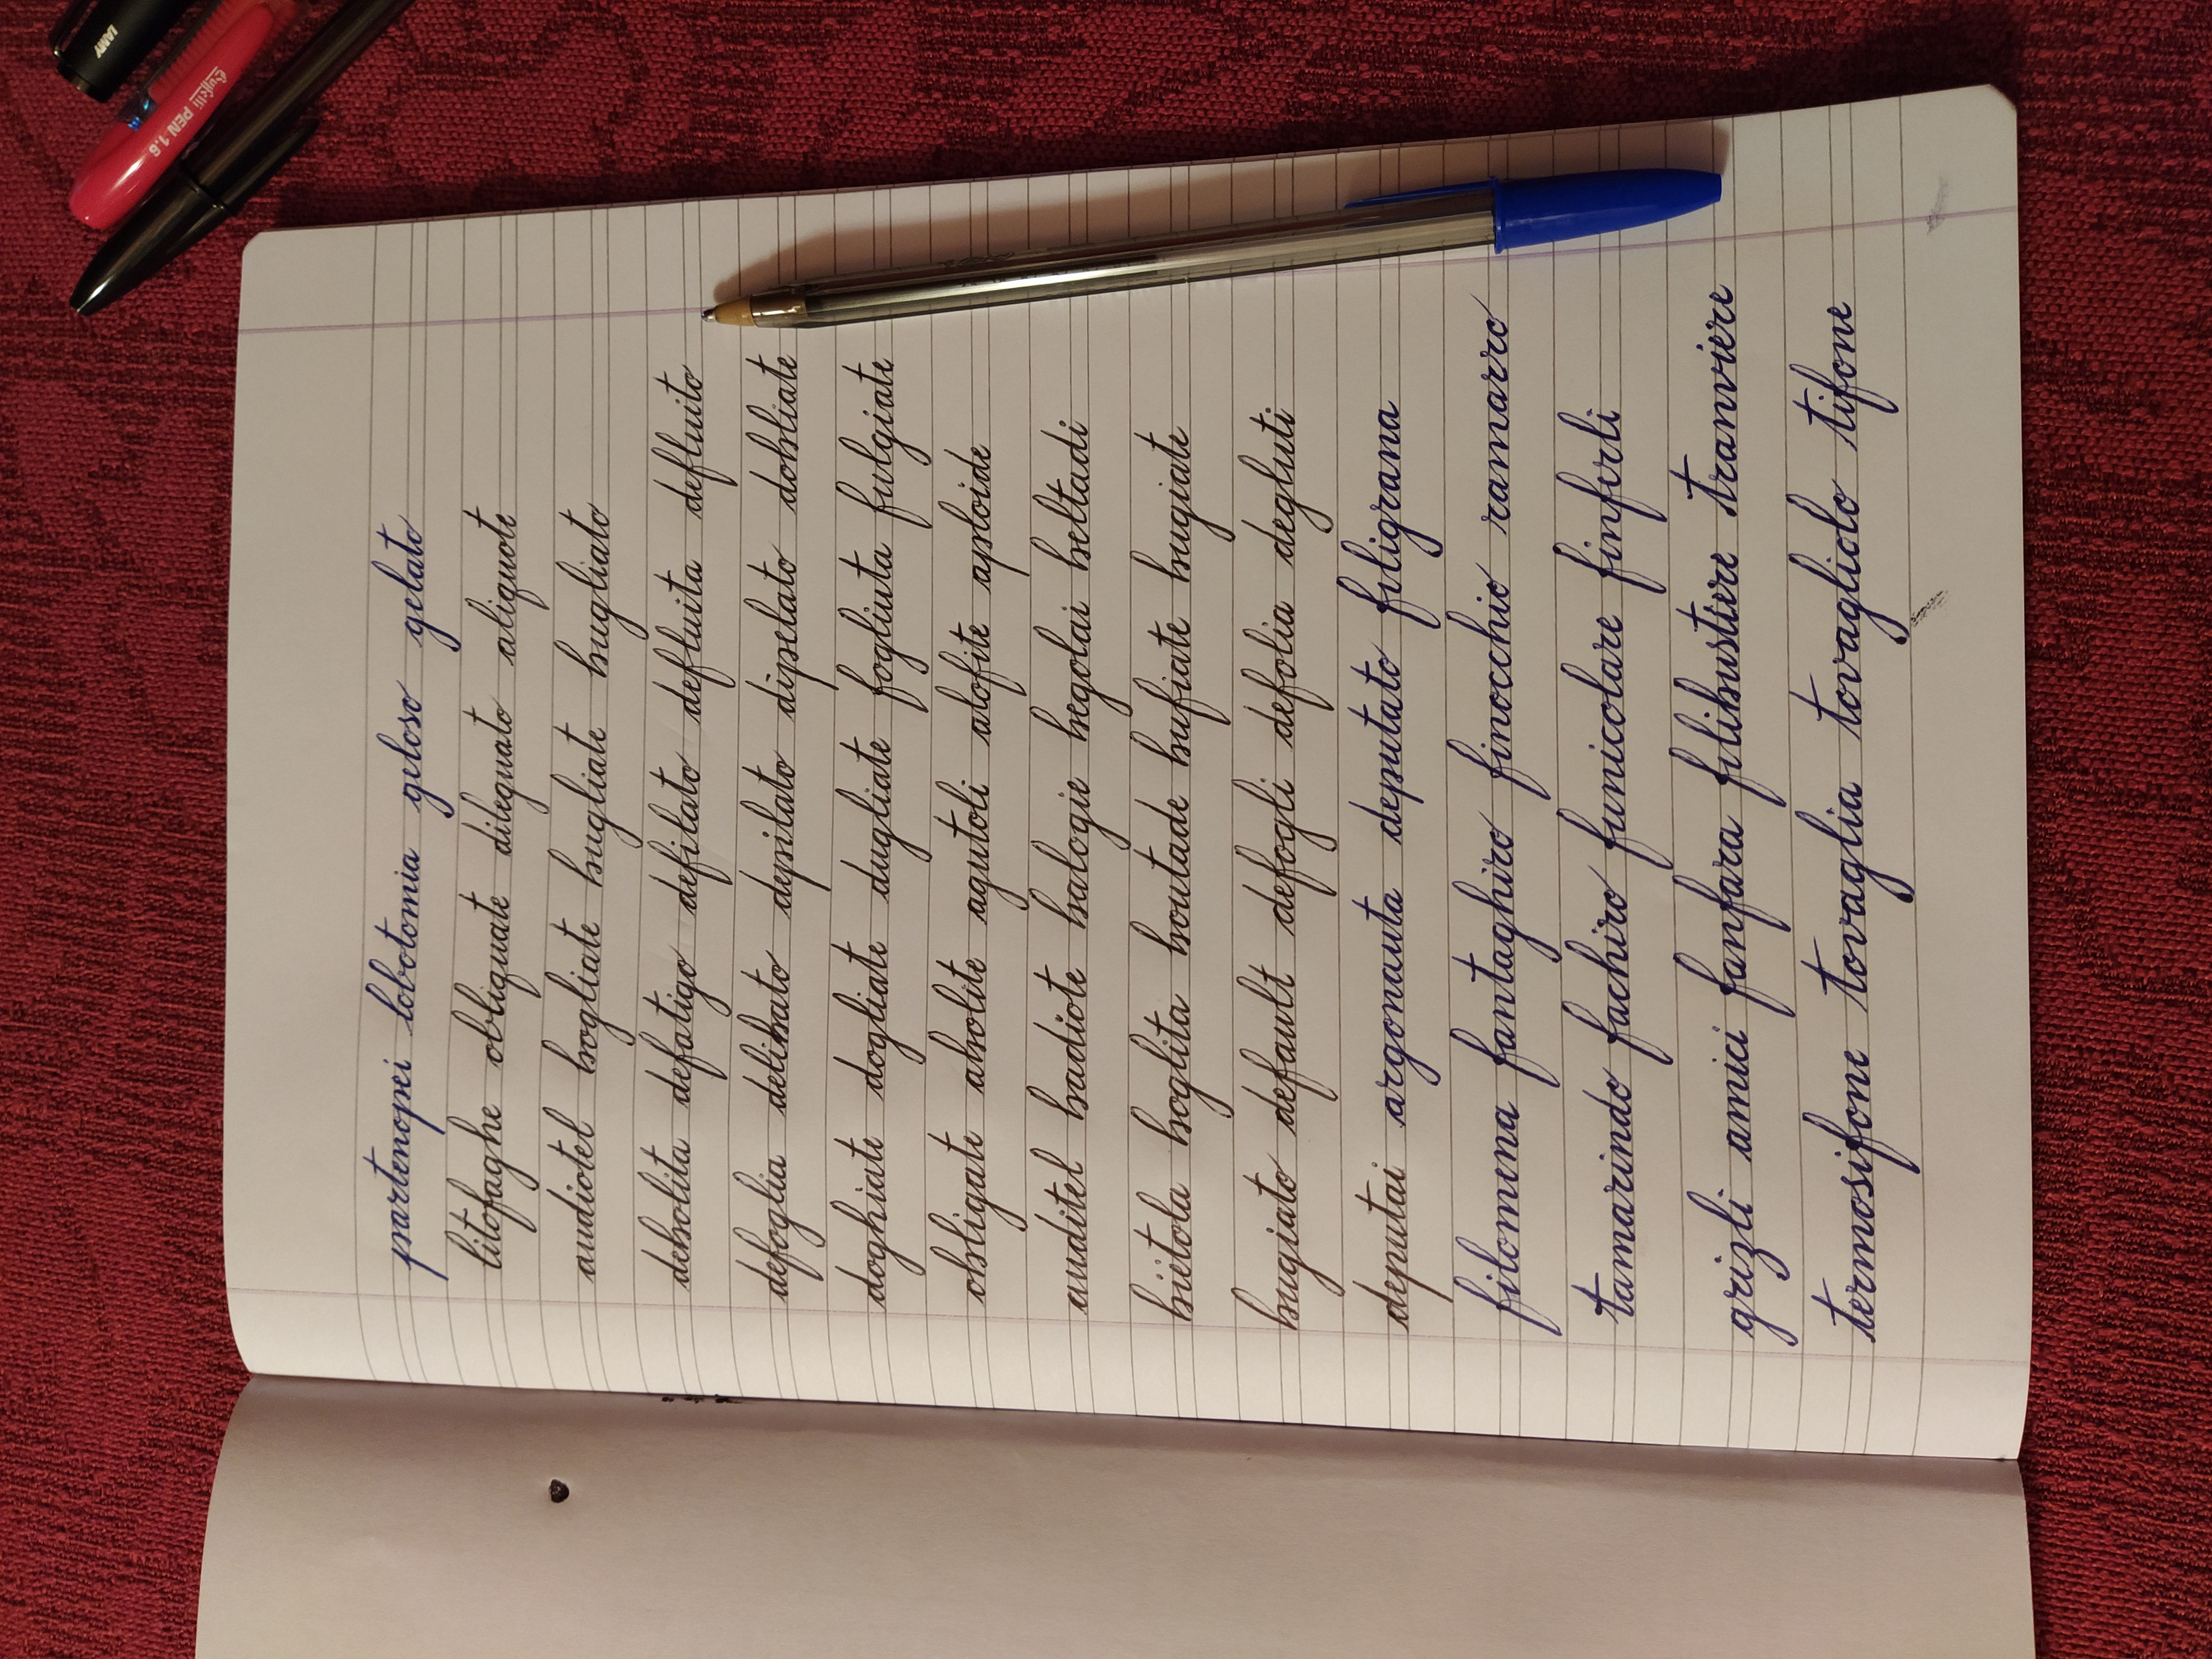 partenopei lobotomia geloso gelato
litofaghe obliquate dileguato aliquote
audiotel bogliate bugliate bugliato
debolita defatigo defilato defluita defluito
defoglia delibato depilato dipelato dobliate
doghiate dogliate dugliate fogliuta fulgiate
obligate abolite agutoli alofite aploide
auditel badiote balogie begolai beltadi
bietola boglita boutade bufiate bugiate
bugiato default defogli defolia degluti
deputai argonauta deputato filigrana
filomena fantaghiro finocchio ramarro
tamarindo fachiro funicolare finferli
grizli amici fanfara filibustiere tranviere
termosifone tovaglia tovagliolo tifone
LAMY
PEN 1.6